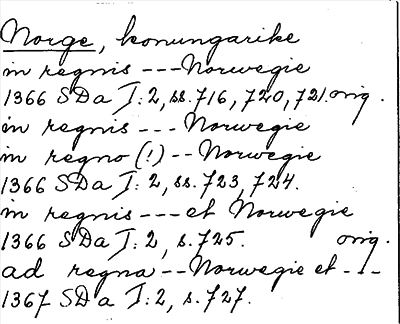 Norge, konungarike
in regnis --- Norwegie
1366 SDa I:2, ss. 716, 720, 721. orig.
in regnis --- Norwegie
in regno (!) -- Norwegie
1366 SDa I: 2, ss. 723, 724.
in regnis --- et Norwegie
1366 SDa I: 2, s. 725. orig.
ad regna -- Norwegie et ---
1367 SDa I:2, s. 727.